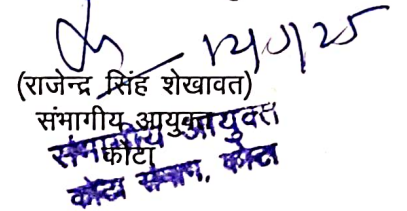 12/01/25
(राजेन्द्र सिंह शेखावत)
संभागीय आयुक्त
कोटा
संभागीय आयुक्त
कोटा संभाग, कोटा